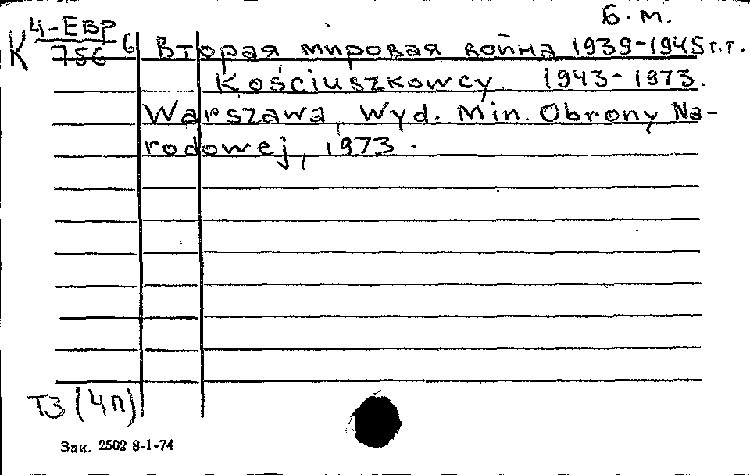 Б.м.
Ц-ЕВР
К 756 б Вторая мировая война 1939-1945 г.г.
Kościuszkowcy 1943-1973.
Warszawa, Wyd. Min. Obrony Na-
rodowej, 1973.
ТЗ (4п)
Зак. 2502 8-1-74